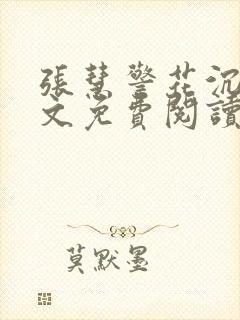 張慧警花沉
文免費閱讀
莫默墨